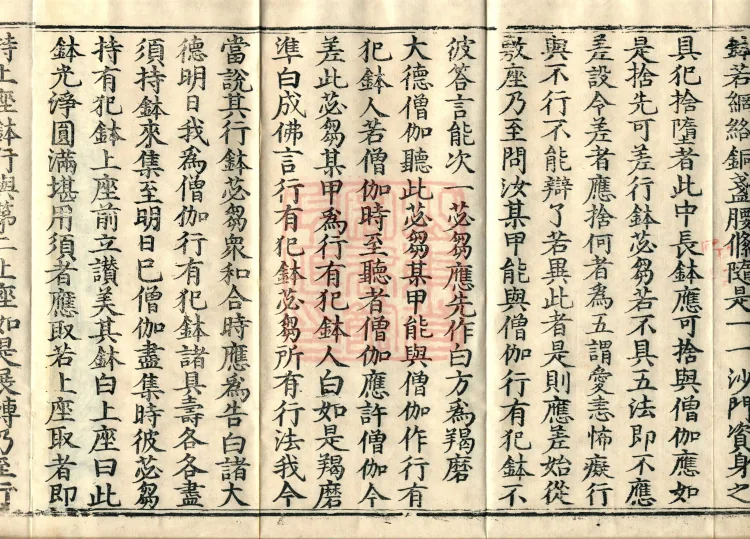 鉢若綱絡銅盞腰絛隨是一一沙門資身之
具犯捨墮者此中長鉢應可捨與僧伽應如
是捨先可差行鉢苾芻若不具五法即不應
差設令差者應捨何者為五謂愛恚怖癡行
與不行不能辯了若異此者是則應差始從
敷座乃至問汝某甲能與僧伽行有犯鉢不
彼答言能次一苾芻應先作白方為羯磨
大德僧伽聽此苾芻某甲能與僧伽作行有
犯鉢人若僧伽時至聽者僧伽應許僧伽今
差此苾芻某甲為行有犯鉢人白如是羯磨
準白成佛言行有犯鉢苾芻所有行法我今
當說其行鉢苾芻衆和合時應為告白諸大
德明日我為僧伽行有犯鉢諸具壽各各盡
須持鉢來集至明日已僧伽盡集時彼苾芻
持有犯鉢上座前立讚美其鉢白上座曰此
鉢光淨圓滿堪用須者應取若上座取者即
持上座鉢行與第二上座如是展轉乃至行